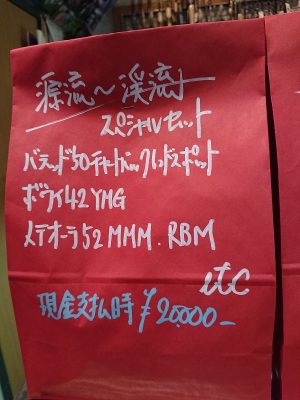 源流～渓流
スペシャルセット
バラッド50チャートバックレッドスポット
ボウイ42YMG
メテオーラ52MMM.RBM
etc
現金支払時¥20000-